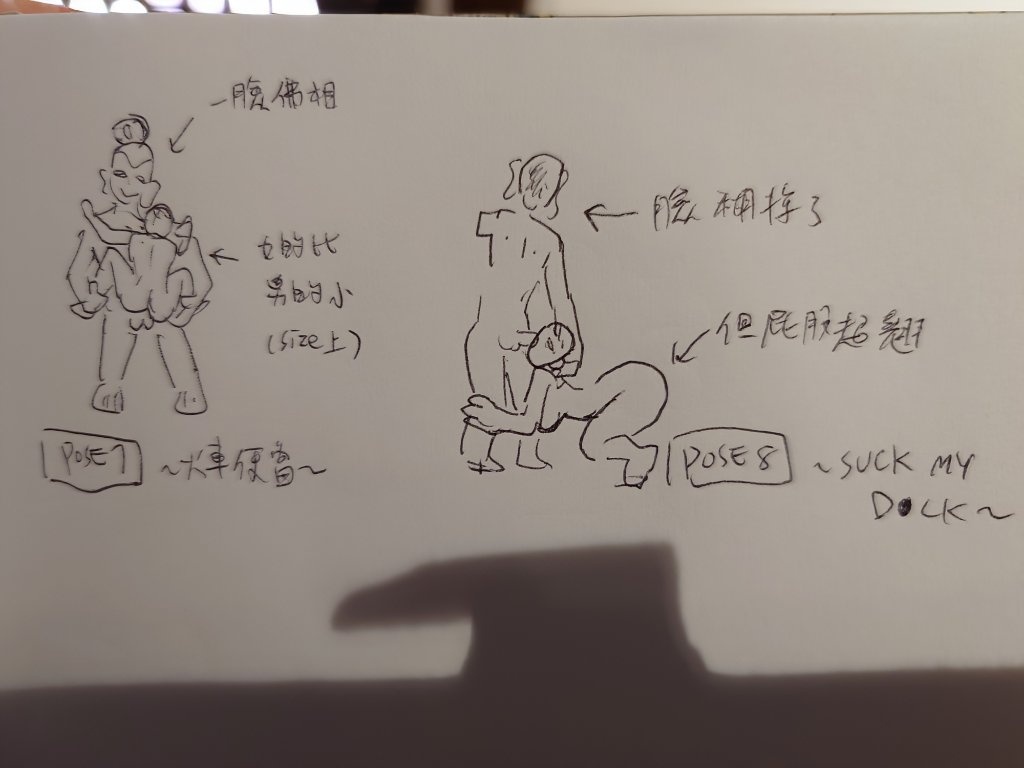 一臉佛相
女的比
男的小
(size上)
POSE 7
~火車便當~
臉糊掉了
但屁股超翹
POSE 8
~SUCK MY
D●CK~